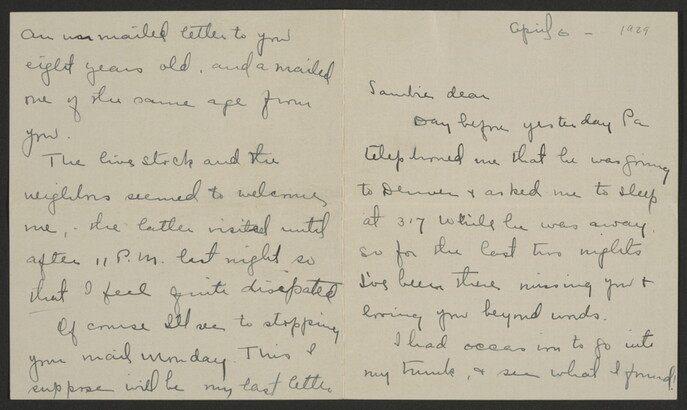 April 6 - 1929
Sambie dear
Day before yesterday Pa
telephoned me that he was going
to Denver & asked me to sleep
at 317 while he was away.
so for the last two nights
I've been there missing you &
loving you beyond words.
I had occasion to go into
my trunk, & see what I found!
an unmailed letter to you
eight years old, and a mailed
one of the same age from
you.
The live stock and the
neighbors seemed to welcome
me, - the latter visited until
after 11 P.M. last night so
that I feel quite dissipated
Of course I'll see to stopping
your mail Monday. This I
suppose will be my last letter